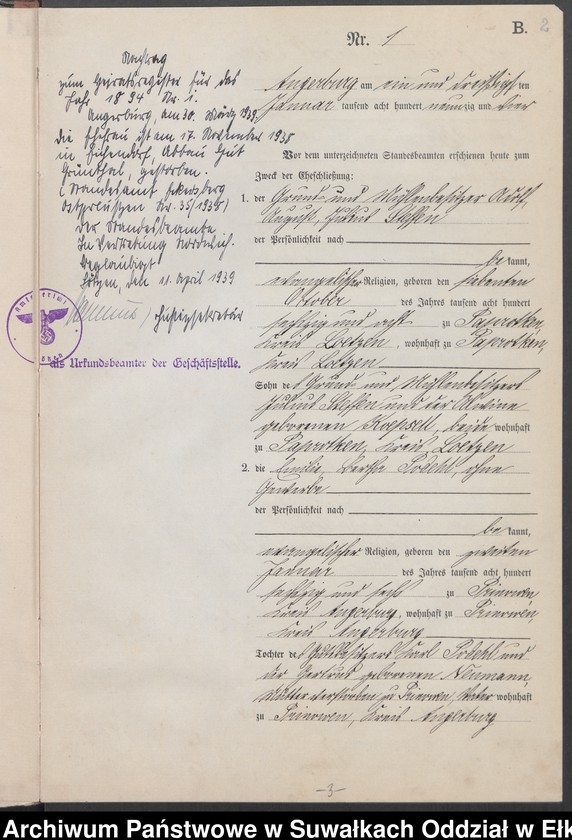 B. 2
Nr. 1
Nachtrag
zum Heiratsregister für das
Jahr 1894 Nr. 1.
Angerburg, am 30. März 1939.
Die Ehefrau ist am 17. November 1938
in Abbau Gut
Grünthal, gestorben.
(Standesamt
Ostpreußen Nr. 35/1938)
Der Standesbeamte
In Vertretung
Beglaubigt
Lötzen, den 11. April 1939
Justizsekretär
als Urkundsbeamter der Geschäftsstelle.
Angerburg am ein und dreißigsten
Januar tausend acht hundert neunzig und vier
Vor dem unterzeichneten Standesbeamten erschienen heute zum
Zweck der Eheschließung:
1. der Grund und Mühlenbesitzer Adolf,
August, Julius Steffen
der Persönlichkeit nach
be kannt,
evangelischer Religion, geboren den siebenten
October des Jahres tausend acht hundert
sechszig und acht zu Paprotken,
Kreis Loetzen, wohnhaft zu Paprotken,
Kreis Loetzen
Sohn des Grund und Mühlenbesitzers
Julius Steffen und der
geborenen Koepsell, beide wohnhaft
zu Paprotken, Kreis Loetzen
2. die Emilie, Bertha ohne
Gewerbe
der Persönlichkeit nach
be kannt,
evangelischer Religion, geboren den zweiten
Januar des Jahres tausend acht hundert
sechszig und sechs zu Prinowen,
Kreis Angerburg, wohnhaft zu Prinowen,
Kreis Angerburg
Tochter des Gutsbesitzers Karl und
der Gertrud geborenen Neumann,
Mutter verstorben zu Prinowen, Vater wohnhaft
zu Prinowen, Kreis Angerburg
-3-
Archiwum Państwowe w Suwałkach Oddział w Ełk